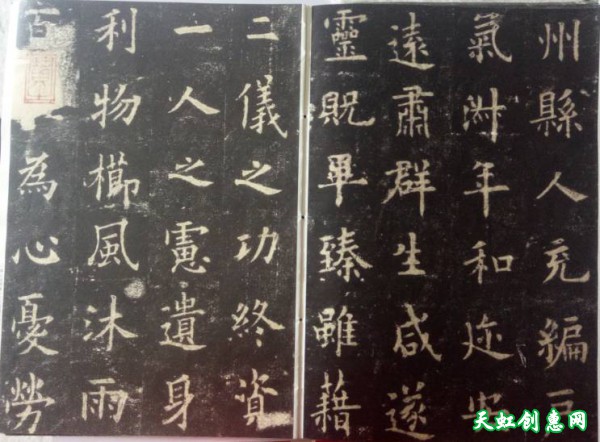 州縣人充編戶
氣淑年和迩安
遠肅群生咸遂
靈貺畢臻雖藉
二儀之功終資
一人之慮遺身
利物櫛風沐雨
百為心憂勞
天虹创惠网